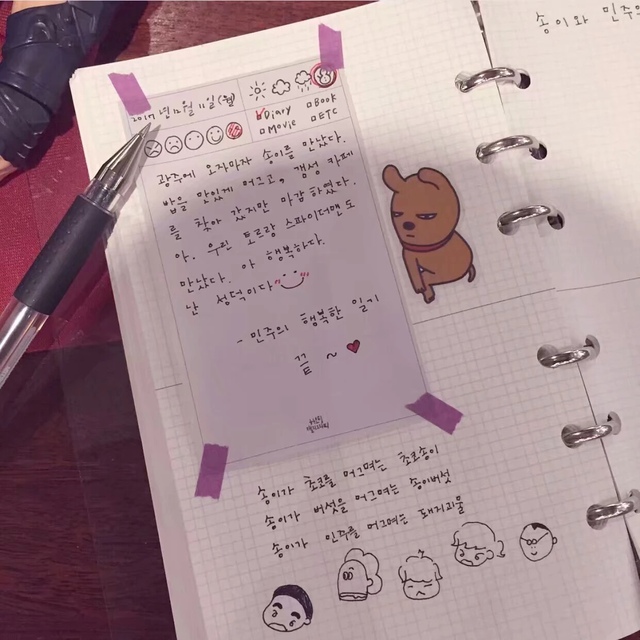 송이와 민주의
2017년 12월 11일 (월)
Diary
Book
Movie
ETC
광주에 오자마자 송이를 만났다.
밥을 맛있게 머그고, 갬성 카페
를 찾아 갔지만 마감하였다.
아, 우린 토르랑 스파이더맨도
만났다. 아 행복하다.
난 성덕이다
- 민주의 행복한 일기
끝 ~ ♥
송이가 초코를 머그며는 초코송이
송이가 버섯을 머그며는 송이버섯
송이가 민주를 머그며는 돼지괴물